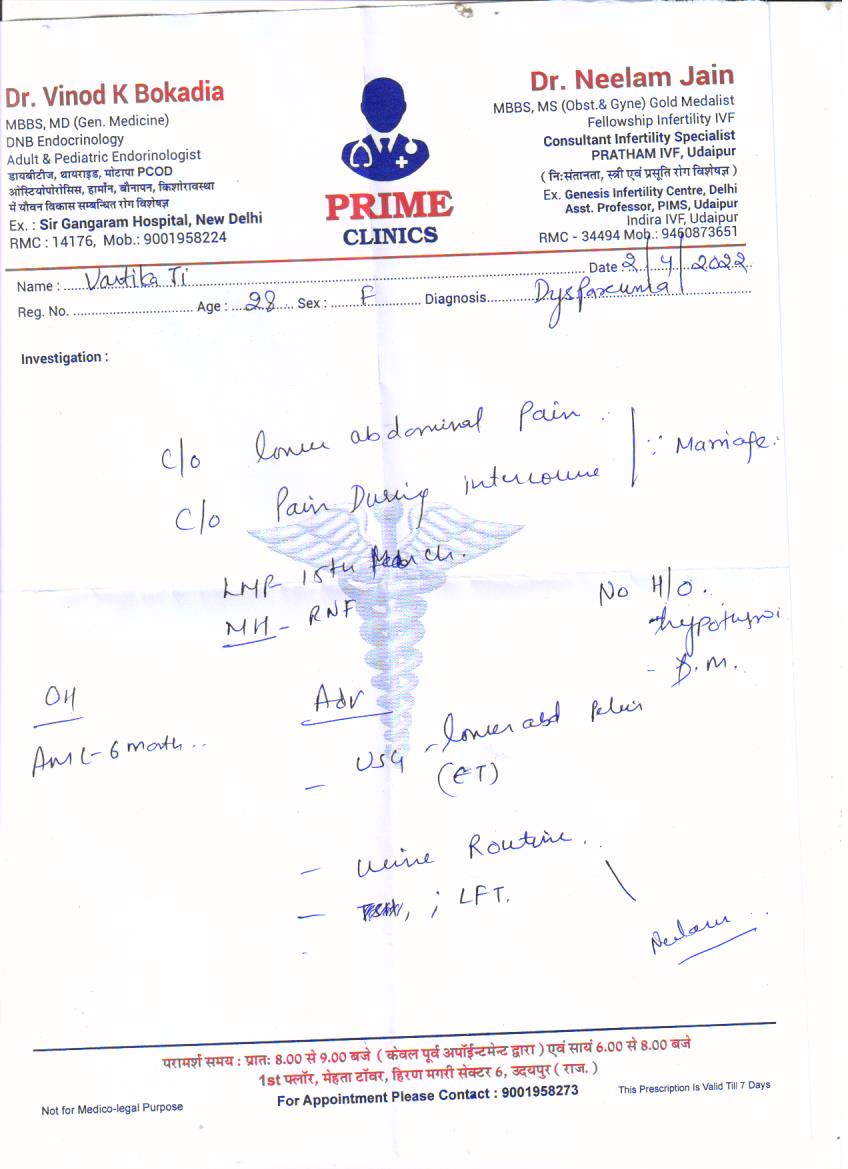 Dr. Vinod K Bokadia
MBBS, MD (Gen. Medicine)
DNB Endocrinology
Adult & Pediatric Endorinologist
डायबीटीज, थायराइड, मोटापा PCOD
ओस्टियोपोरोसिस, हार्मोन, बौनापन, किशोरावस्था
में यौवन विकास सम्बन्धित रोग विशेषज्ञ
Ex. : Sir Gangaram Hospital, New Delhi
RMC : 14176, Mob.: 9001958224
PRIME
CLINICS
Dr. Neelam Jain
MBBS, MS (Obst.& Gyne) Gold Medalist
Fellowship Infertility IVF
Consultant Infertility Specialist
PRATHAM IVF, Udaipur
( नि:संतानता, स्त्री एवं प्रसूति रोग विशेषज्ञ )
Ex. Genesis Infertility Centre, Delhi
Asst. Professor, PIMS, Udaipur
Indira IVF, Udaipur
RMC - 34494 Mob.: 9460873651
Name : Vartika Ji Date : 2/4/2022
Reg. No. Age : 28 Sex : F Diagnosis Dyspareunia
Investigation :
C/o lower abdominal Pain .
C/o Pain During intercourse ∵ Marriage.
LMP 15th March.
MH - RNF
No H/O.
- D.M.
OH
AML - 6 month ..
Adv
- USG - lower abd Pelvis
(ET)
- Urine Routine .
- ; LFT.
Neelam
परामर्श समय : प्रातः 8.00 से 9.00 बजे ( केवल पूर्व अपॉईन्टमेन्ट द्वारा ) एवं सायं 6.00 से 8.00 बजे
1st फ्लॉर, मेहता टॉवर, हिरण मगरी सेक्टर 6, उदयपुर ( राज. )
For Appointment Please Contact : 9001958273
Not for Medico-legal Purpose
This Prescription Is Valid Till 7 Days